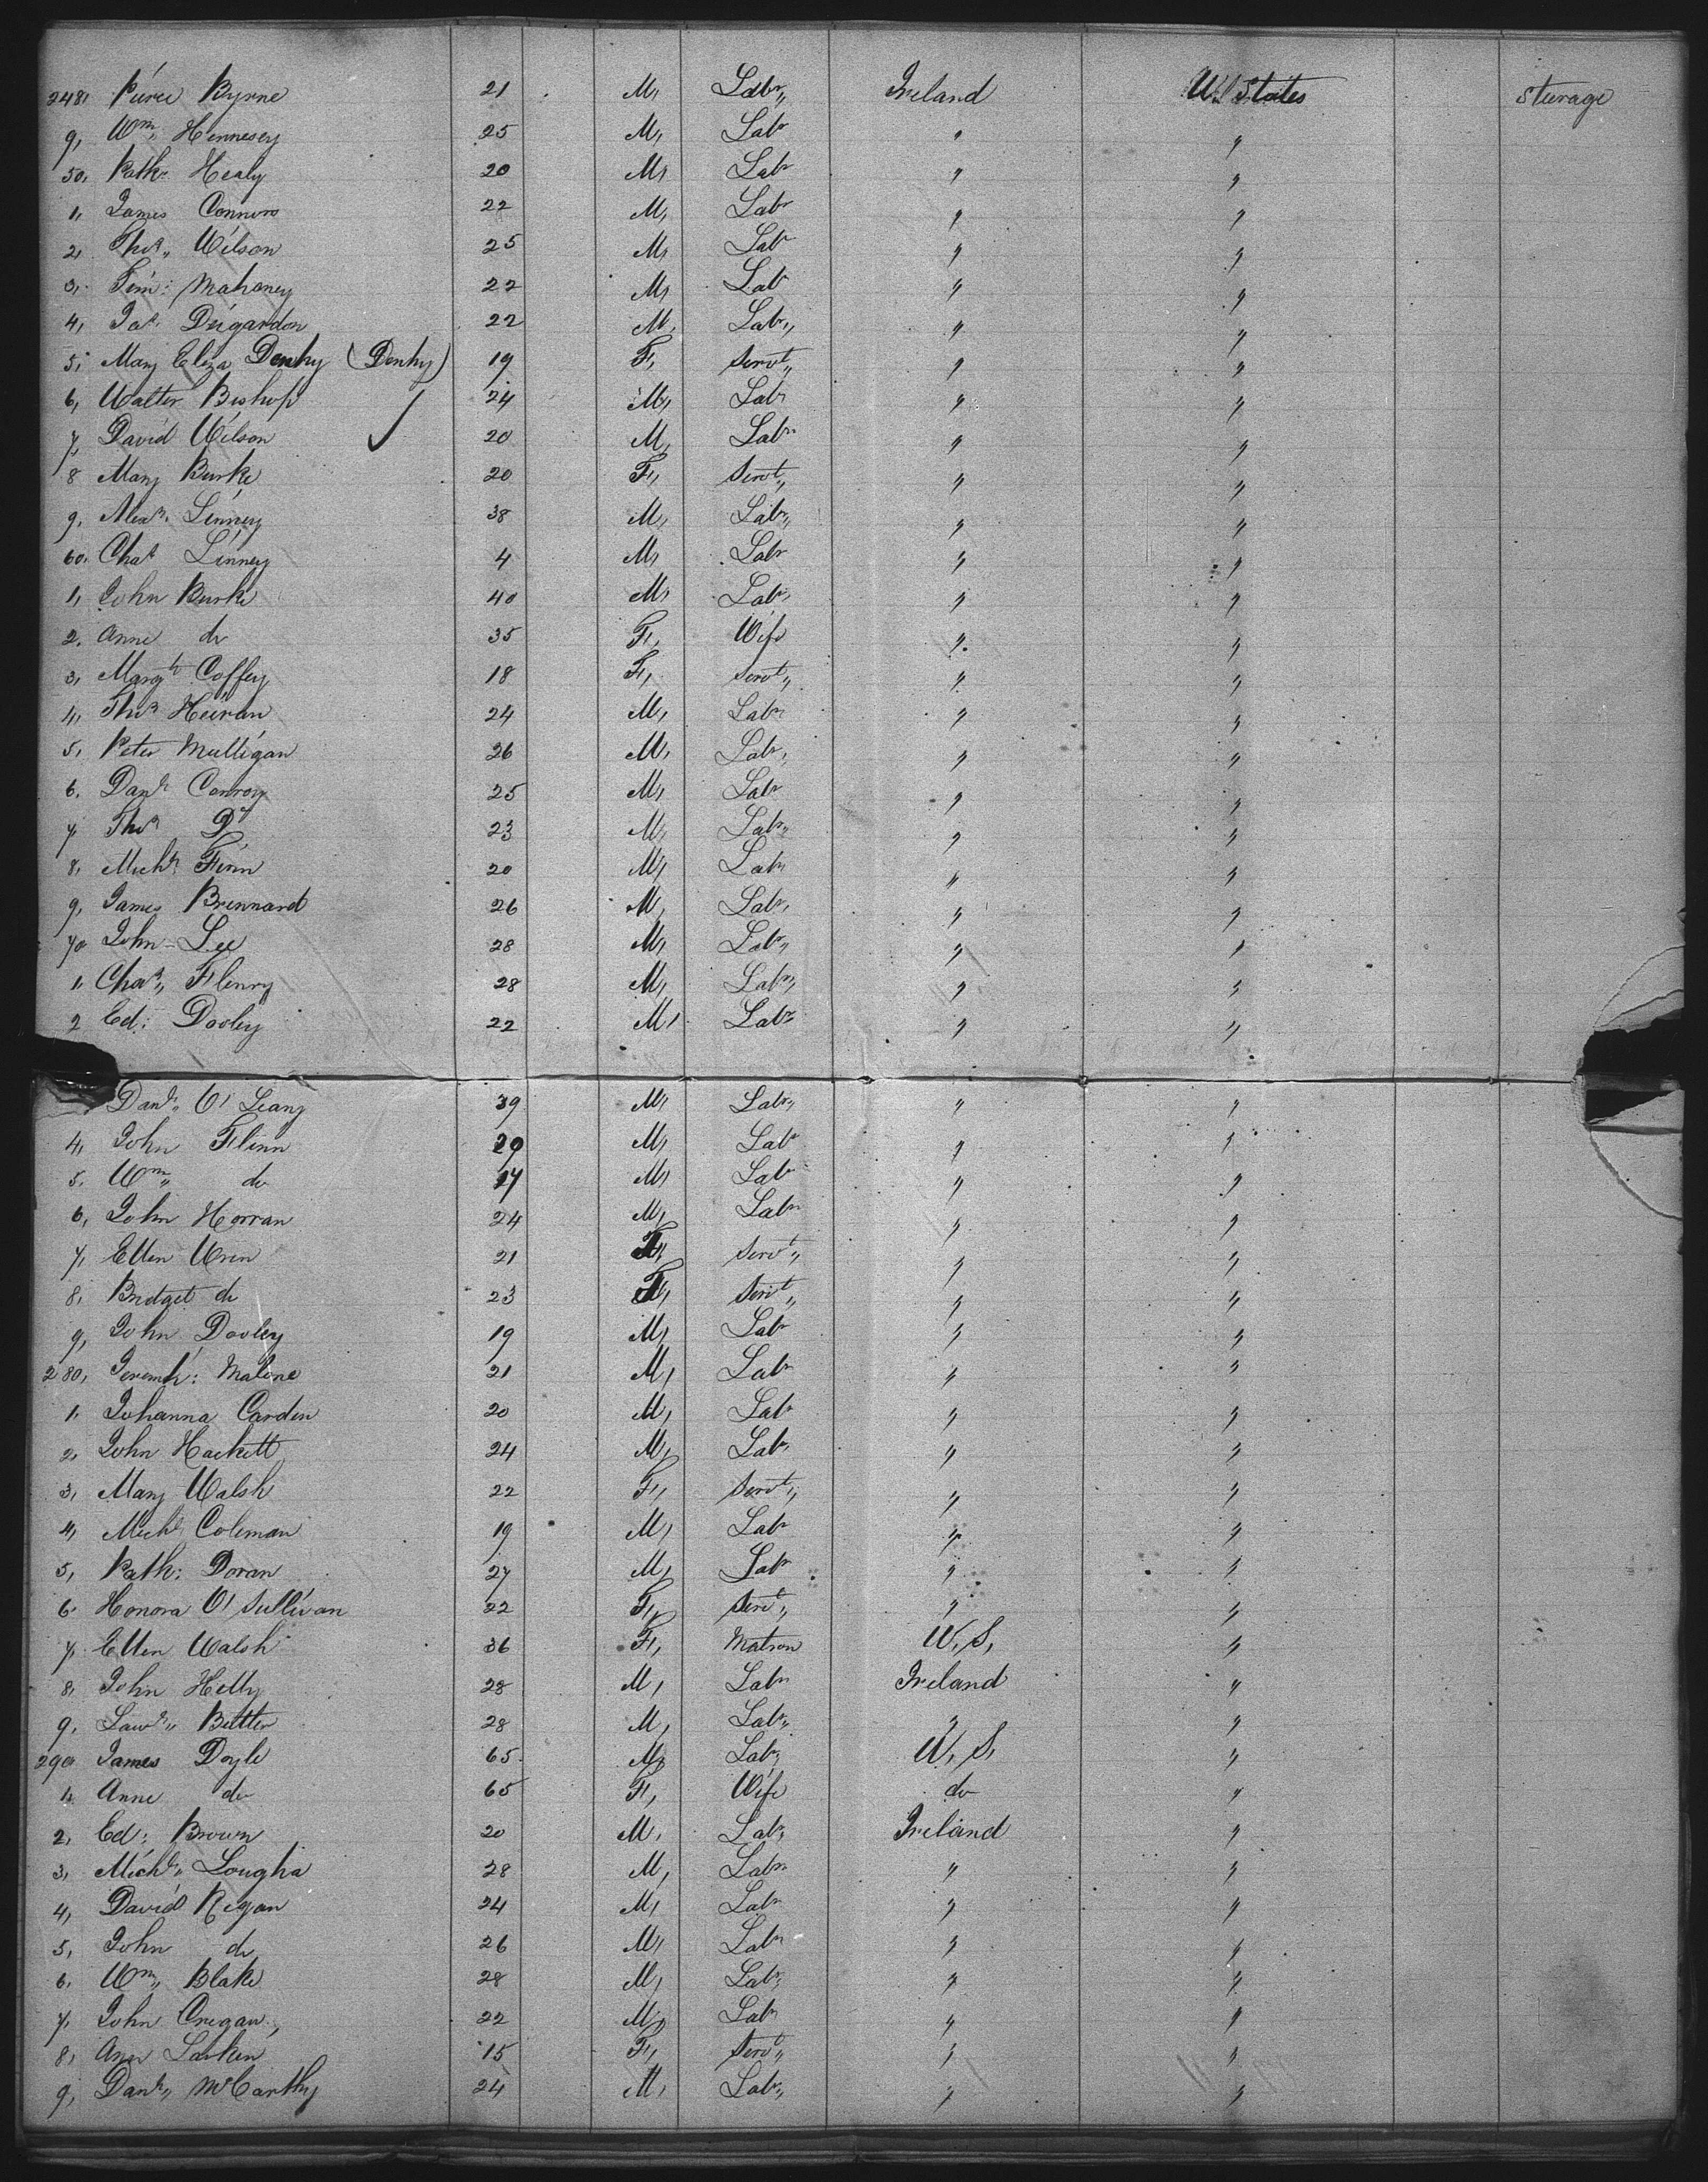 248, Pierce Byrne 21 M, Labr,, Ireland U. States Steerage
9, Wm,, Hennesey 25 M, Labr " "
50, Patk: Healy 20 M, Labr " "
1, James Connors 22 M, Labr " "
2, Thos,, Wilson 25 M, Labr " "
3, Tim: Mahoney 22 M, Lab " "
4, Jas. 22 M, Labr,, " "
5, Mary Eliza Denhy (Denhy) 19 F, Servt,, " "
6, Walter Bishop 24 M, Labr " "
7, David Wilson ✓ 20 M, Labr " "
8 Mary Burke 20 F, Servt,, " "
9, Alexr. Linney 38 M, Labr,, " "
60, Chas Linney 4 M, Labr " "
1, John Burke 40 M, Labr, " "
2. Anne do 35 F, Wife " "
3, Margt Coffey 18 F, Servt,, " "
4, Thos Heiran 24 M, Labr " "
5, Peter Mulligan 26 M, Labr, " "
6. Danl Conroy 25 M, Labr " "
7 Thos Do 23 M, Labr,, " "
8, Michl Finn 20 M, Labr " "
9, James Brennard 26 M, Labr, " "
70 John Lee 28 M, Labr,, " "
1, Chas,, Flenry 28 M, Labr,, " "
2 Ed: Dooley 22 M, Labr " "
Danl,, O'Leary 39 M, Labr,, " "
4, John Flinn 29 M, Labr " "
5. Wm,, do 17 M, Labr " "
6, John Horran 24 M, Labr " "
7, Ellen Uren 21 F, Servt,, " "
8, Bridget do 23 F, Servt,, " "
9, John Dooley 19 M, Labr " "
280, Jeremh: Malone 21 M, Labr " "
1, Johanna Carden 20 M, Labr " "
2, John Hackett 24 M, Labr, " "
3, Mary Walsh 22 F, Servt,, " "
4, Michl Coleman 19 M, Labr " "
5, Patk: Doran 27 M, Labr " "
6 Honora O'Sullivan 22 F, Servt,, " "
7, Ellen Walsh 36 F, Matron U, S, "
8, John Helly 28 M, Labr Ireland "
9, Lawr,, Butler 28 M, Labr,, " "
290 James Doyle 65 M, Labr, U, S, "
1, Anne do 65 F, Wife do "
2, Ed: Brown 20 M, Labr, Ireland "
3, Michl,, Lougha 28 M, Labr " "
4, David Regan 24 M, Labr " "
5, John do 26 M, Labr " "
6, Wm,, Blake 28 M, Labr, " "
7, John Cregan, 22 M, Labr " "
8, Ann Larken 15 F, Servt,, " "
9, Danl,, McCarthy 24 M, Labr,, " "